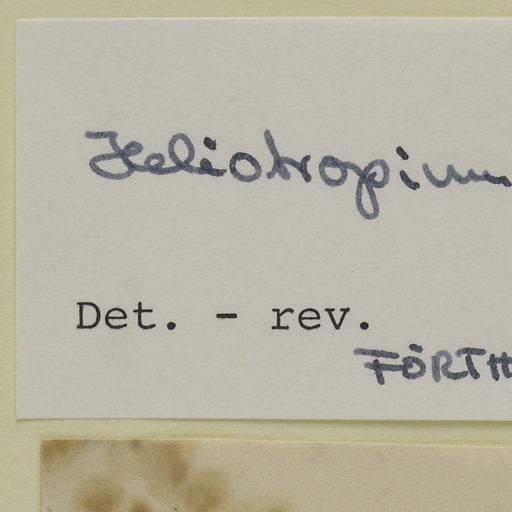 Heliotropium
Det. - rev.
FÖRTH